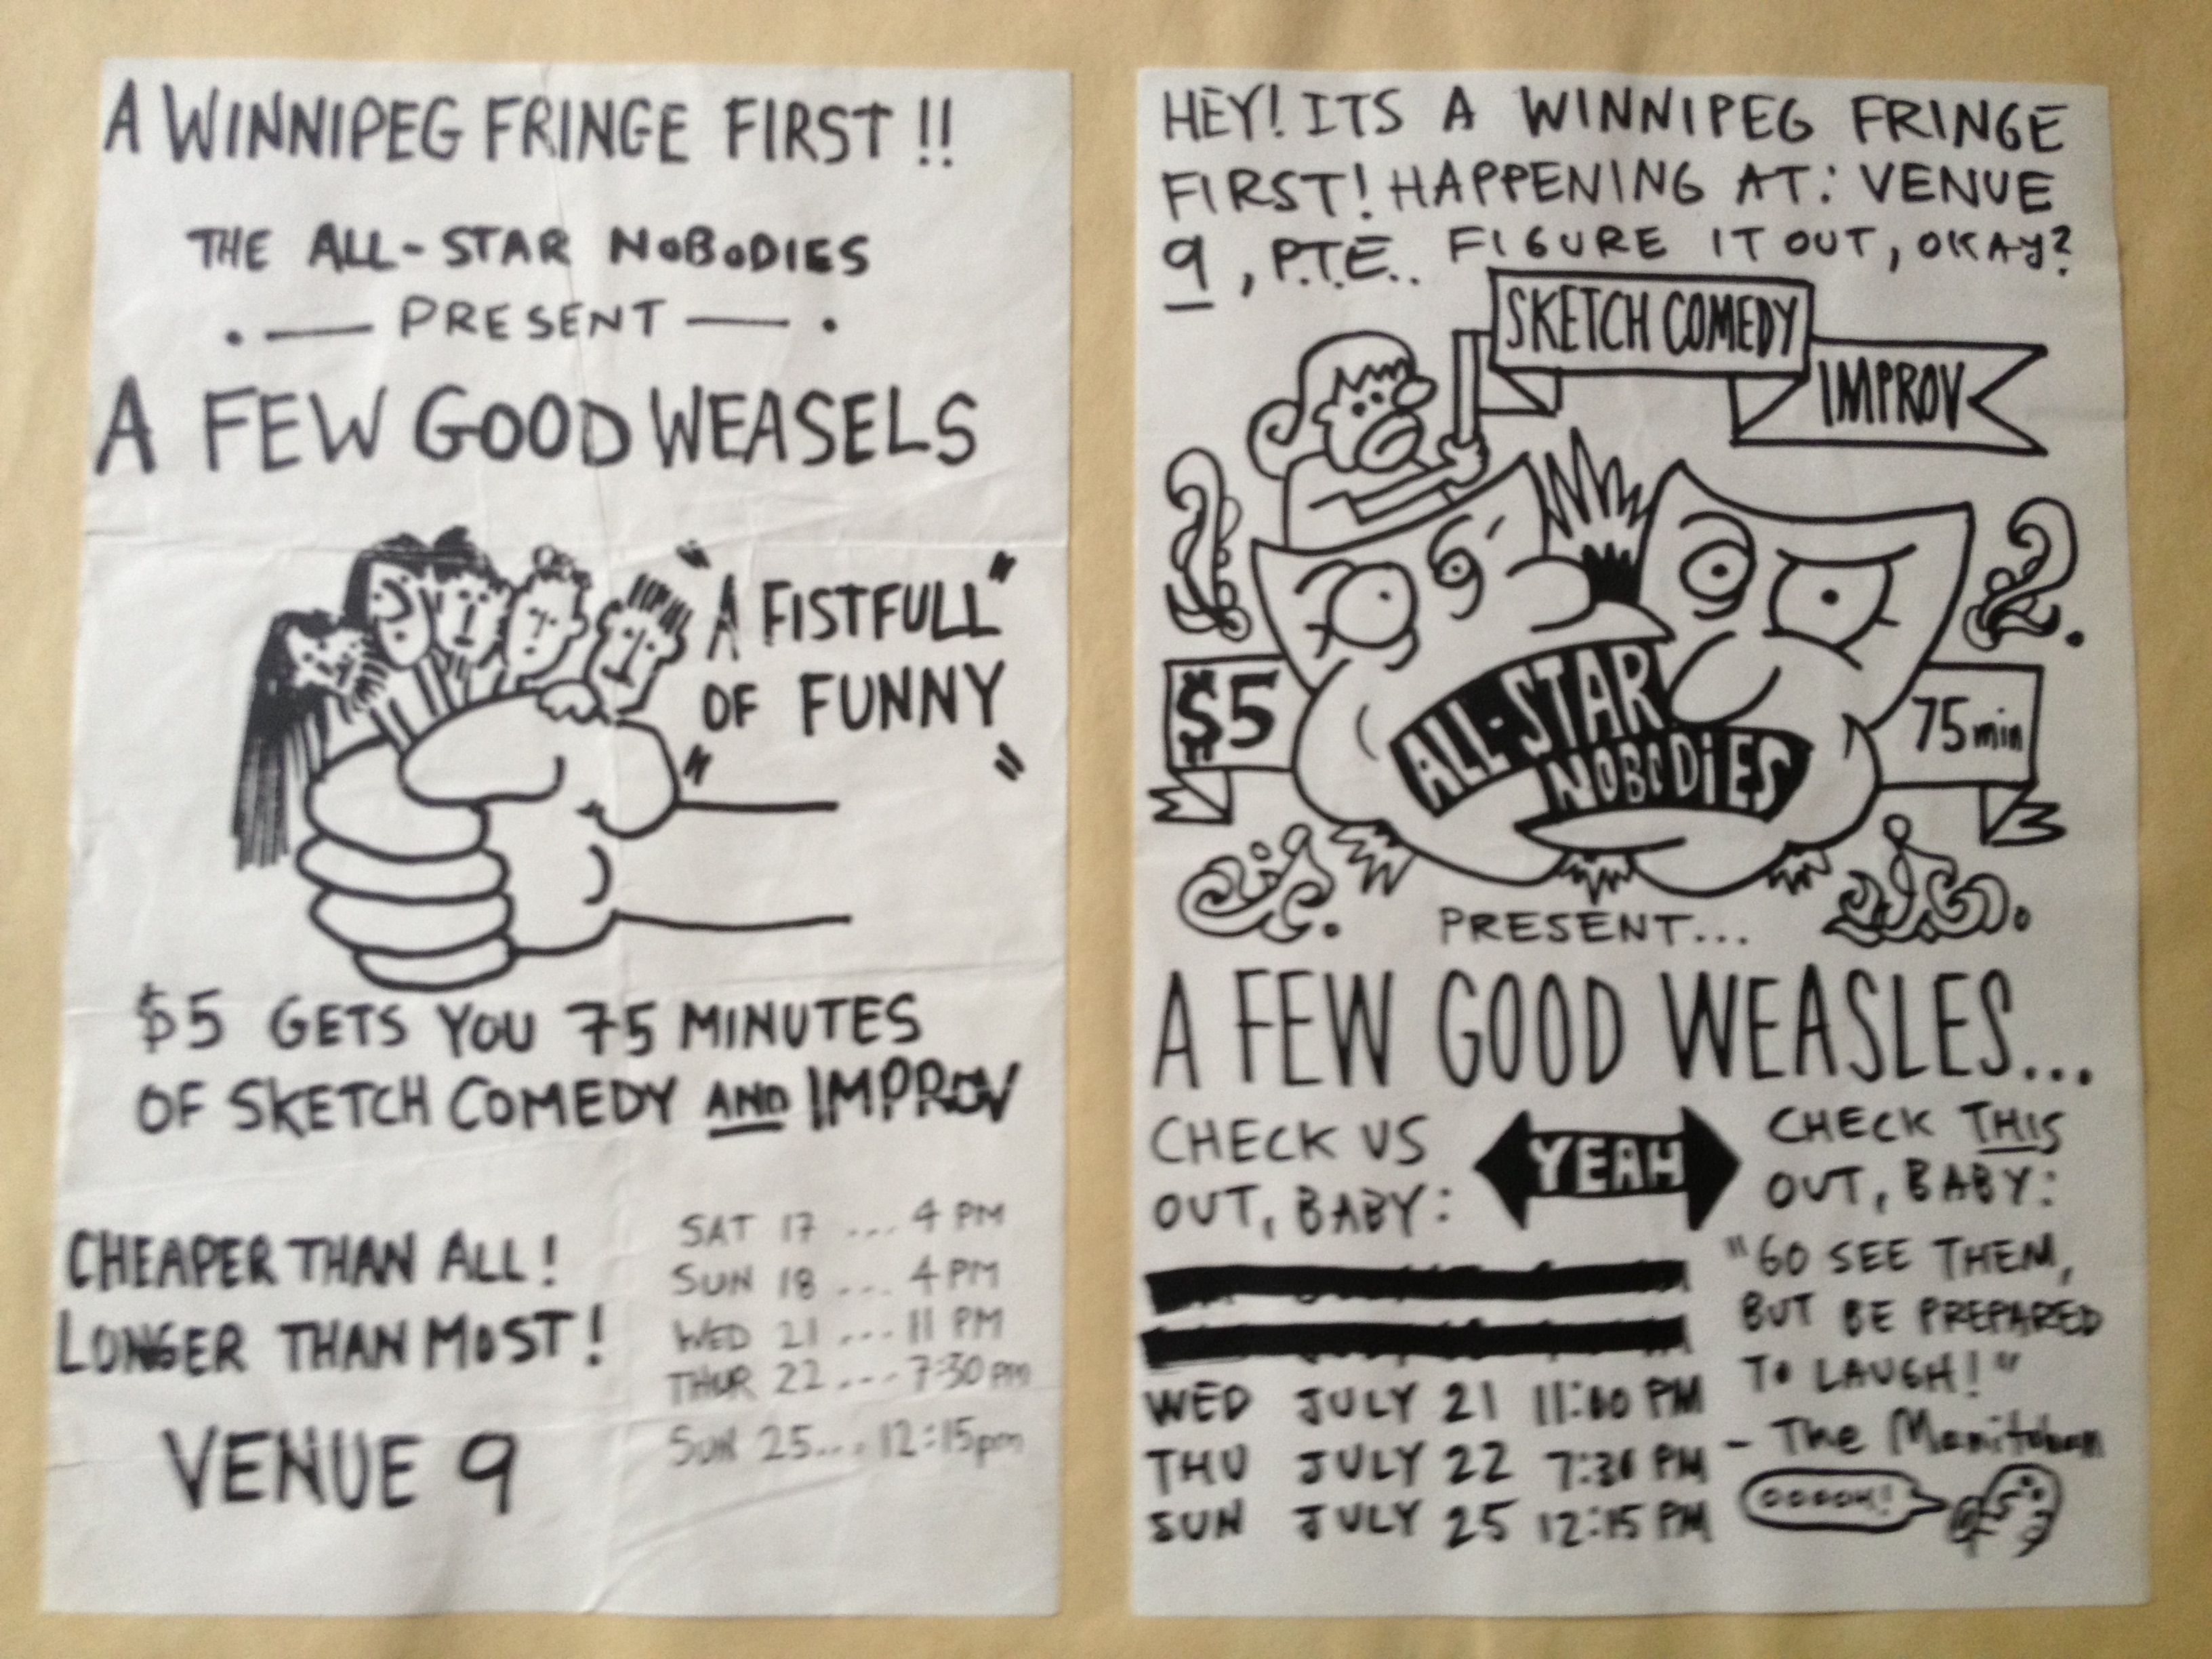 A WINNIPEG FRINGE FIRST!!
THE ALL-STAR NOBODIES
PRESENT
A FEW GOOD WEASELS
"A FISTFULL"
OF FUNNY
" "
$5 GETS YOU 75 MINUTES
OF SKETCH COMEDY AND IMPROV
CHEAPER THAN ALL!
LONGER THAN MOST!
VENUE 9
SAT 17 ... 4 PM
SUN 18 ... 4 PM
WED 21 ... 11 PM
THUR 22 ... 7:30 PM
SUN 25 ... 12:15pm
HEY! ITS A WINNIPEG FRINGE
FIRST! HAPPENING AT: VENUE
9, P.T.E.. FIGURE IT OUT, OKAY?
SKETCH COMEDY
IMPROV
$5
ALL-STAR
NOBODIES
75 min
PRESENT...
A FEW GOOD WEASLES...
CHECK US
OUT, BABY:
YEAH
CHECK THIS
OUT, BABY:
WED JULY 21 11:00 PM
THU JULY 22 7:30 PM
SUN JULY 25 12:15 PM
"GO SEE THEM,
BUT BE PREPARED
TO LAUGH!"
- The Manitoban
OOOOH!